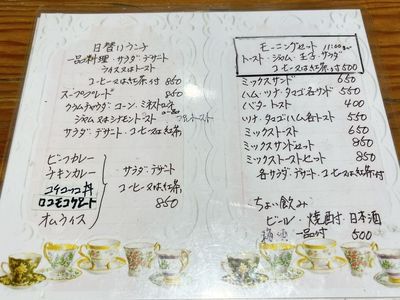 日替りランチ
一品料理・サラダ・デザート
ライス又はトースト
コーヒー又は紅茶付 850
スープブレッド 850
クラムチャウダ・コーン・ミネストローネ
ジャム又はシナモントースト
サラダ・デザート・コーヒー又は紅茶
ビーフカレー
チキンカレー
コチュコッコ丼
ロコモコプレート
オムライス
サラダ・デザート
コーヒー又は紅茶
850
モーニングセット 11:00
トースト・ジャム・玉子・サラダ
コーヒー又は紅茶付 500
ミックスサンド 650
ハム・ツナ・タマゴ各サンド 550
バタートースト 400
ツナ・タマゴ・ハム各トースト 550
ミックストースト 650
ミックスサンドセット 850
ミックストーストセット 850
各サラダ・デザート・コーヒー又は紅茶付
ちょい飲み
ビール・焼酎・日本酒
一品付 500